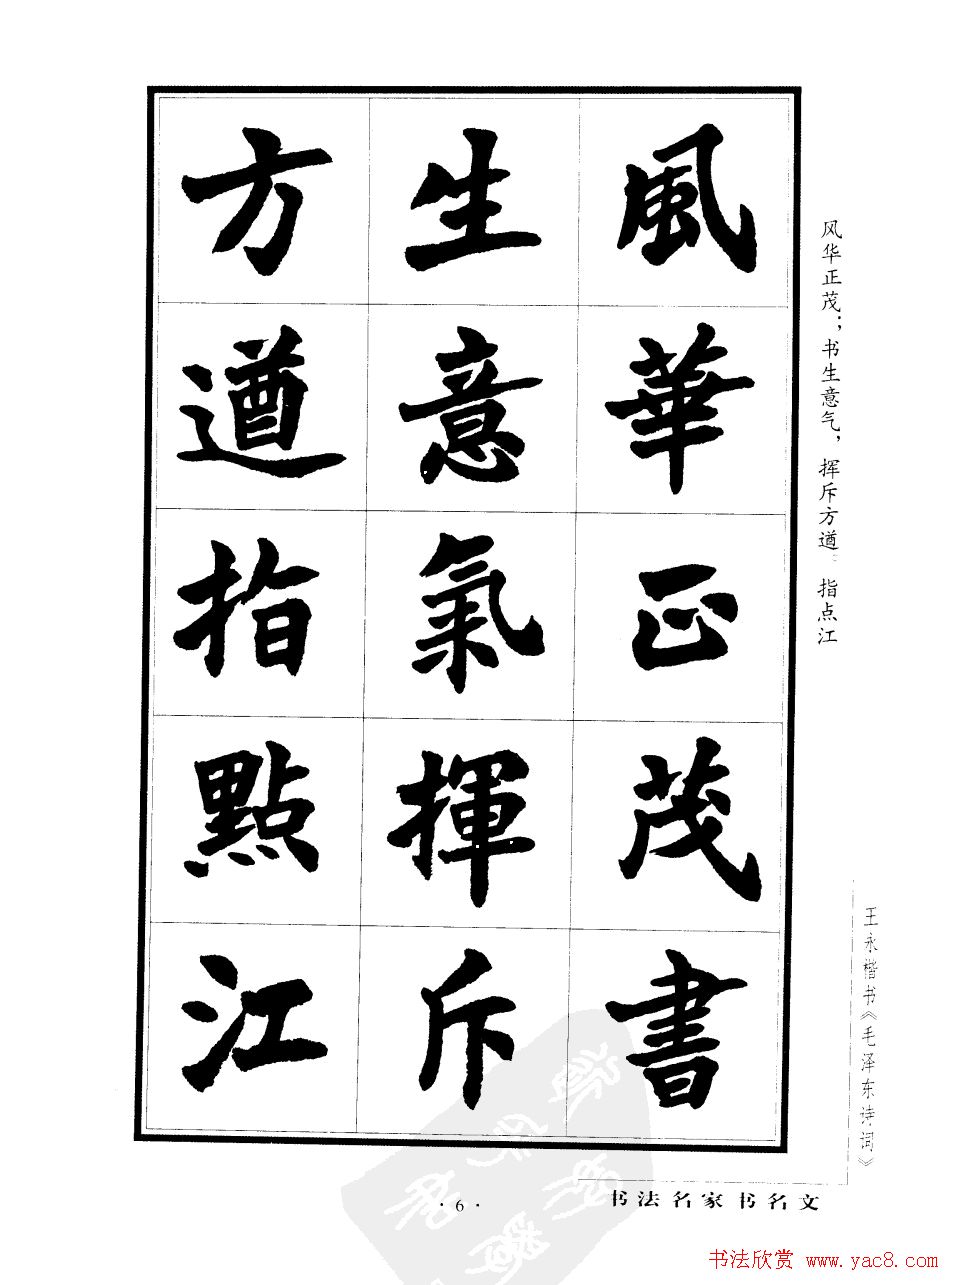 風華正茂書
生意氣揮斥
方遒指點江
风华正茂；书生意气，挥斥方遒。指点江
王永楷书《毛泽东诗词》
书法名家书名文
·6·
书法欣赏 www.yac8.com